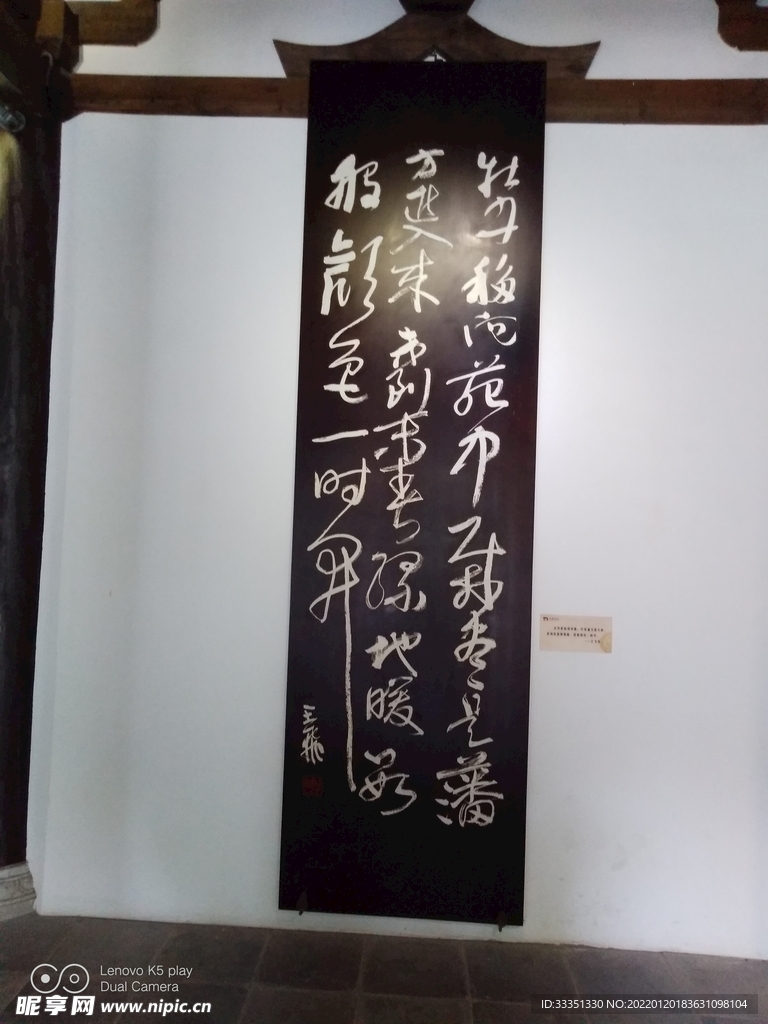 牡丹移向苑中栽盡是藩
方進入來未到末春緣地暖數
般顏色一時開
Lenovo K5 play
Dual Camera
昵享网 www.nipic.cn
ID:33351330 NO:20220120183631098104